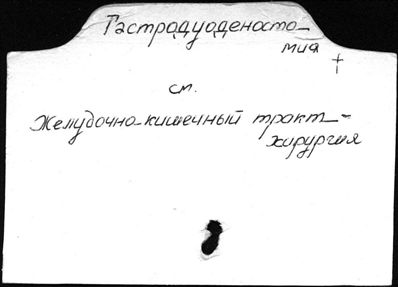 Гастродуоденосто-
мия
см.
Желудочно-кишечный тракт-
хирургия